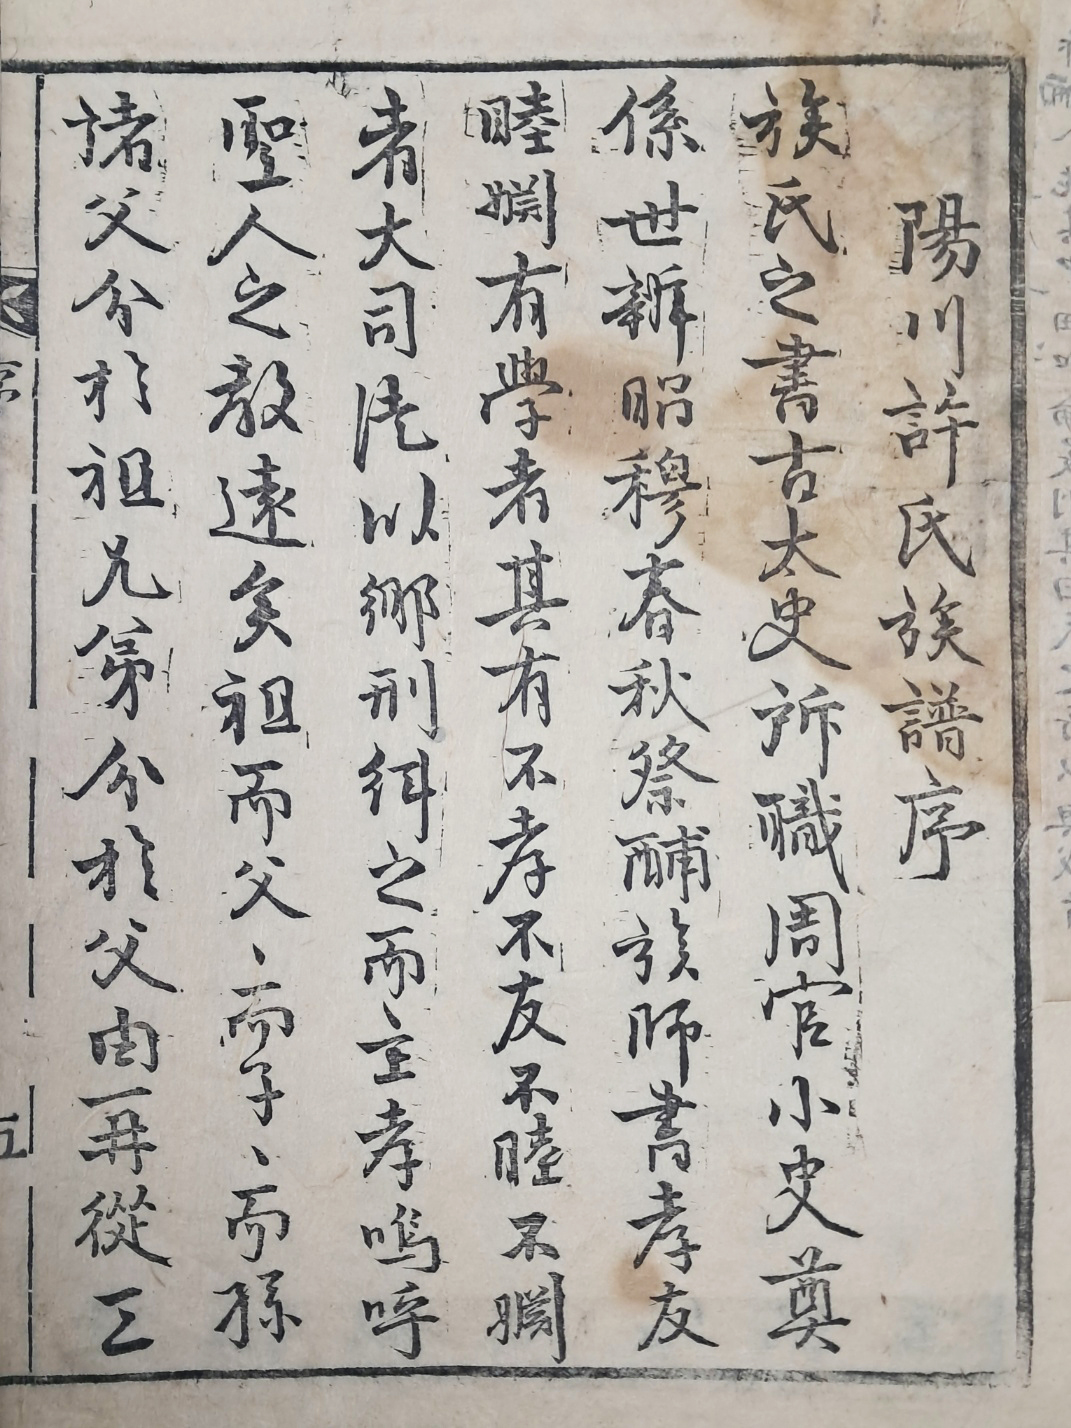 陽川許氏族譜序
族氏之書古太史所職周官小史奠
係世辨昭穆春秋祭酺族師書孝友
睦婣有學者其有不孝不友不睦不婣
者大司徒以鄉刑糾之而主孝嗚呼
聖人之教遠矣祖而父〻而子〻而孫
諸父分於祖兄弟分於父由一再從三
五